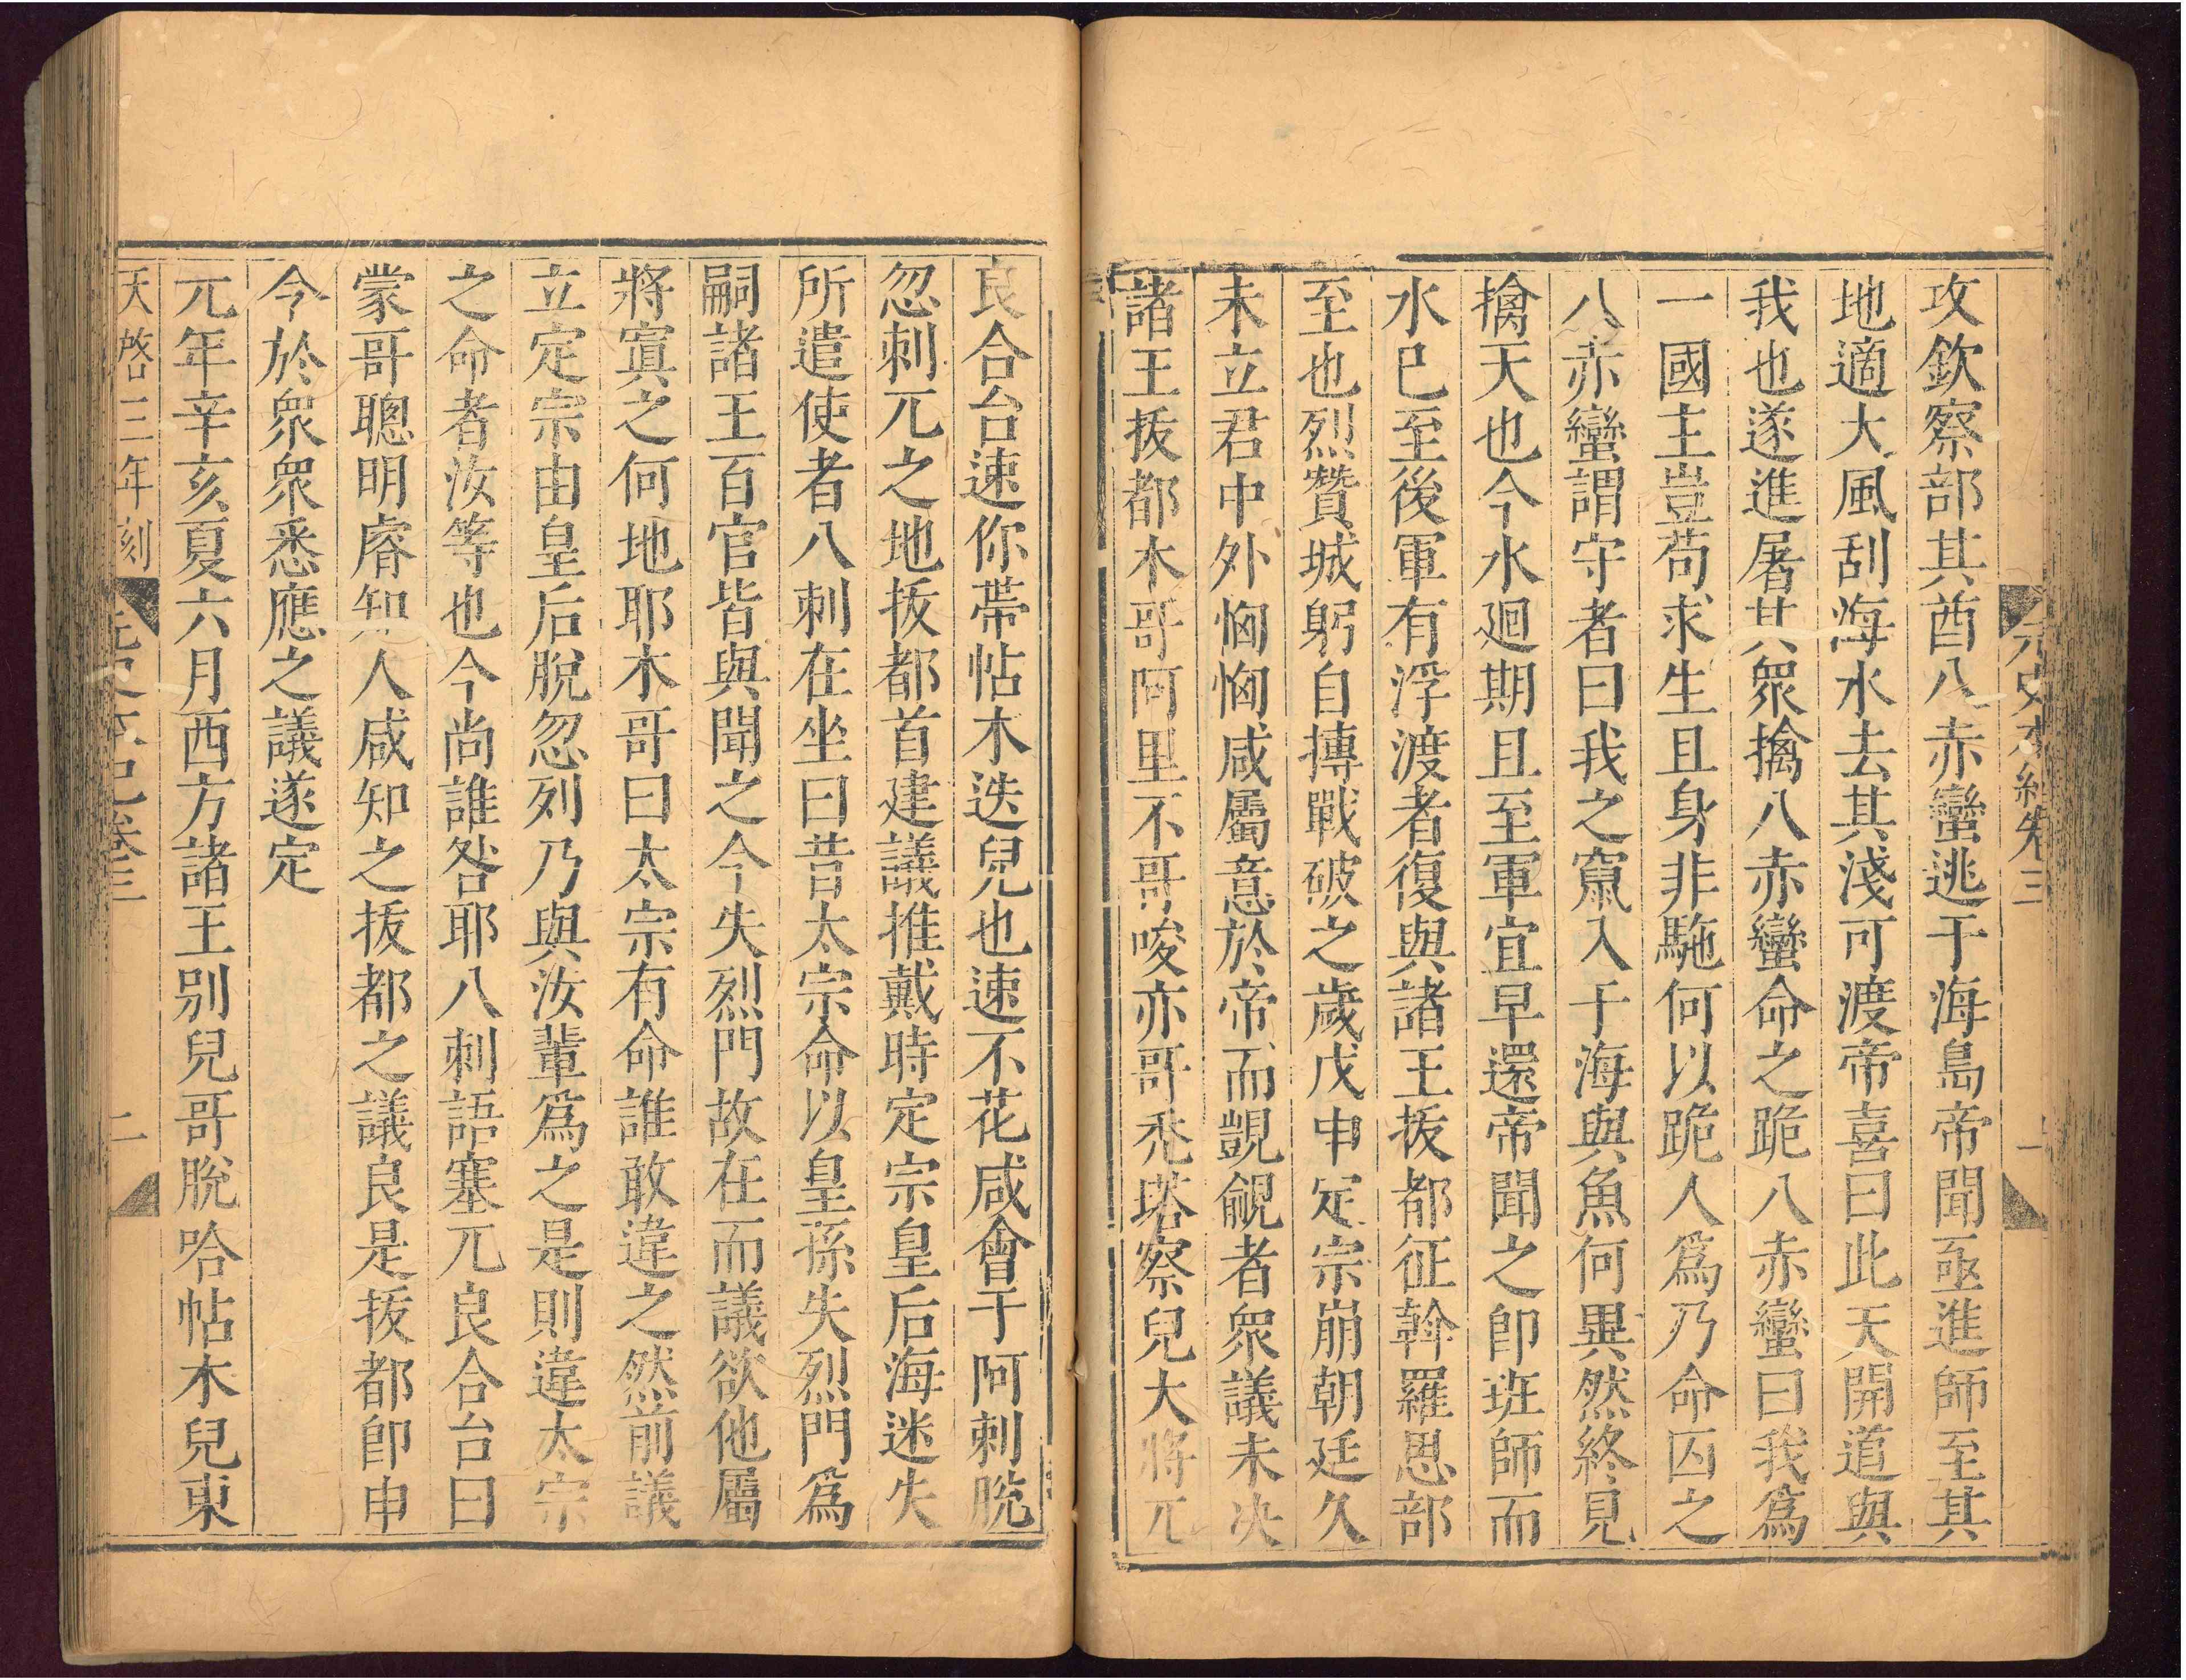 元史本紀卷三
一
攻欽察部其酋八赤蠻逃于海島帝聞亟進師至其
地適大風刮海水去其淺可渡帝喜曰此天開道與
我也遂進屠其衆擒八赤蠻命之跪八赤蠻曰我爲
一國主豈苟求生且身非駞何以跪人爲乃命囚之
八赤蠻謂守者曰我之竄入于海與魚何異然終見
擒天也今水迴期且至軍宜早還帝聞之卽班師而
水巳至後軍有浮渡者復與諸王拔都征斡羅思部
至也烈贊城躬自搏戰破之歲戊申定宗崩朝廷久
未立君中外恟恟咸屬意於帝而覬覦者衆議未决
諸王拔都木哥阿里不哥唆亦哥禿塔察兒大將兀
良合台速你帶帖木迭兒也速不花咸會于阿剌脫
忽剌兀之地拔都首建議推戴時定宗皇后海迷失
所遣使者八剌在坐曰昔太宗命以皇孫失烈門爲
嗣諸王百官皆與聞之今失烈門故在而議欲他屬
將寘之何地耶木哥曰太宗有命誰敢違之然前議
立定宗由皇后脫忽列乃與汝輩爲之是則違太宗
之命者汝等也今尚誰咎耶八剌語塞兀良合台曰
蒙哥聰明睿知人咸知之拔都之議良是拔都卽申
令於衆衆悉應之議遂定
元年辛亥夏六月西方諸王別兒哥脫哈帖木兒東
天啓三年刻
元史本紀卷三
二